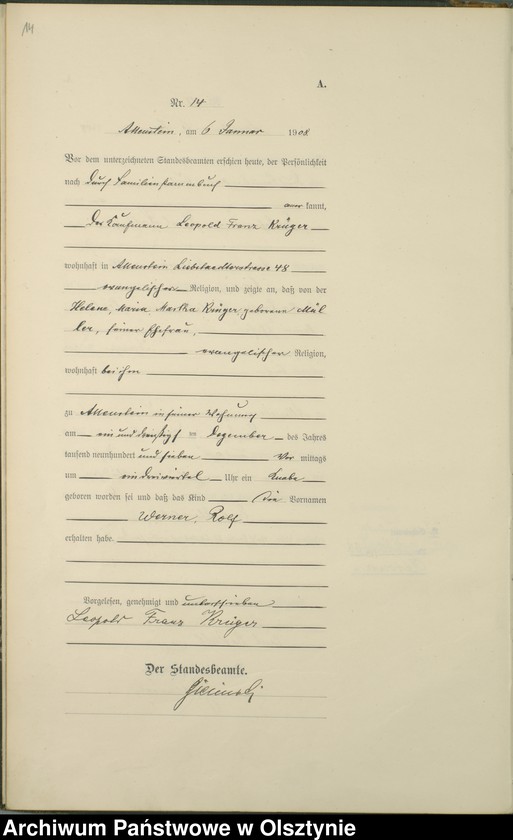 14
A.
Nr. 14
Allenstein, am 6 Januar 1908
Vor dem unterzeichneten Standesbeamten erschien heute, der Persönlichkeit
nach durch Familienstammbuch
kannt,
Der Kaufmann Leopold Franz Krüger
wohnhaft in Allenstein Liebstaedterstrasse 48
evangelischer Religion, und zeigte an, daß von der
Helene, Maria, Martha Krüger geborene Mül
ler, seiner Ehefrau,
evangelischer Religion,
wohnhaft bei ihm
zu Allenstein in seiner Wohnung
am ein und dreißigsten Dezember des Jahres
tausend neunhundert und sieben Vor mittags
um ein dreiviertel Uhr ein Knabe
geboren worden sei und daß das Kind die Vornamen
Werner, Rolf
erhalten habe.
Vorgelesen, genehmigt und unterschrieben
Leopold Franz Krüger
Der Standesbeamte.
Archiwum Państwowe w Olsztynie